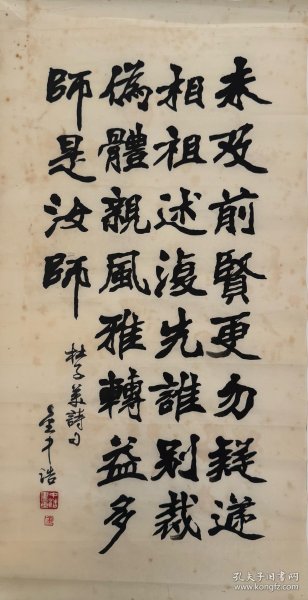 未及前賢更勿疑遞
相祖述復先誰别裁
偽體親風雅轉益多
師是汝師
杜子美詩句
孔夫子旧书网
book.kongfz.com